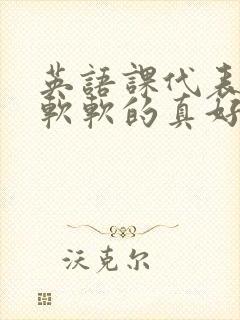 英語課代表
軟軟的真好
沃克尔